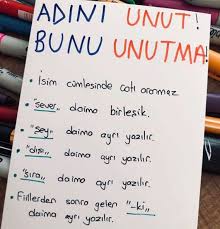 ADINI UNUT!
BUNU UNUTMA!
• İsim cümlesinde çatı aranmaz
• "sever" daima birleşik.
• "şey" daima ayrı yazılır.
• "dışı" daima ayrı yazılır.
• "sıra" daima ayrı yazılır.
• Fiillerden sonra gelen "-ki"
daima ayrı yazılır.